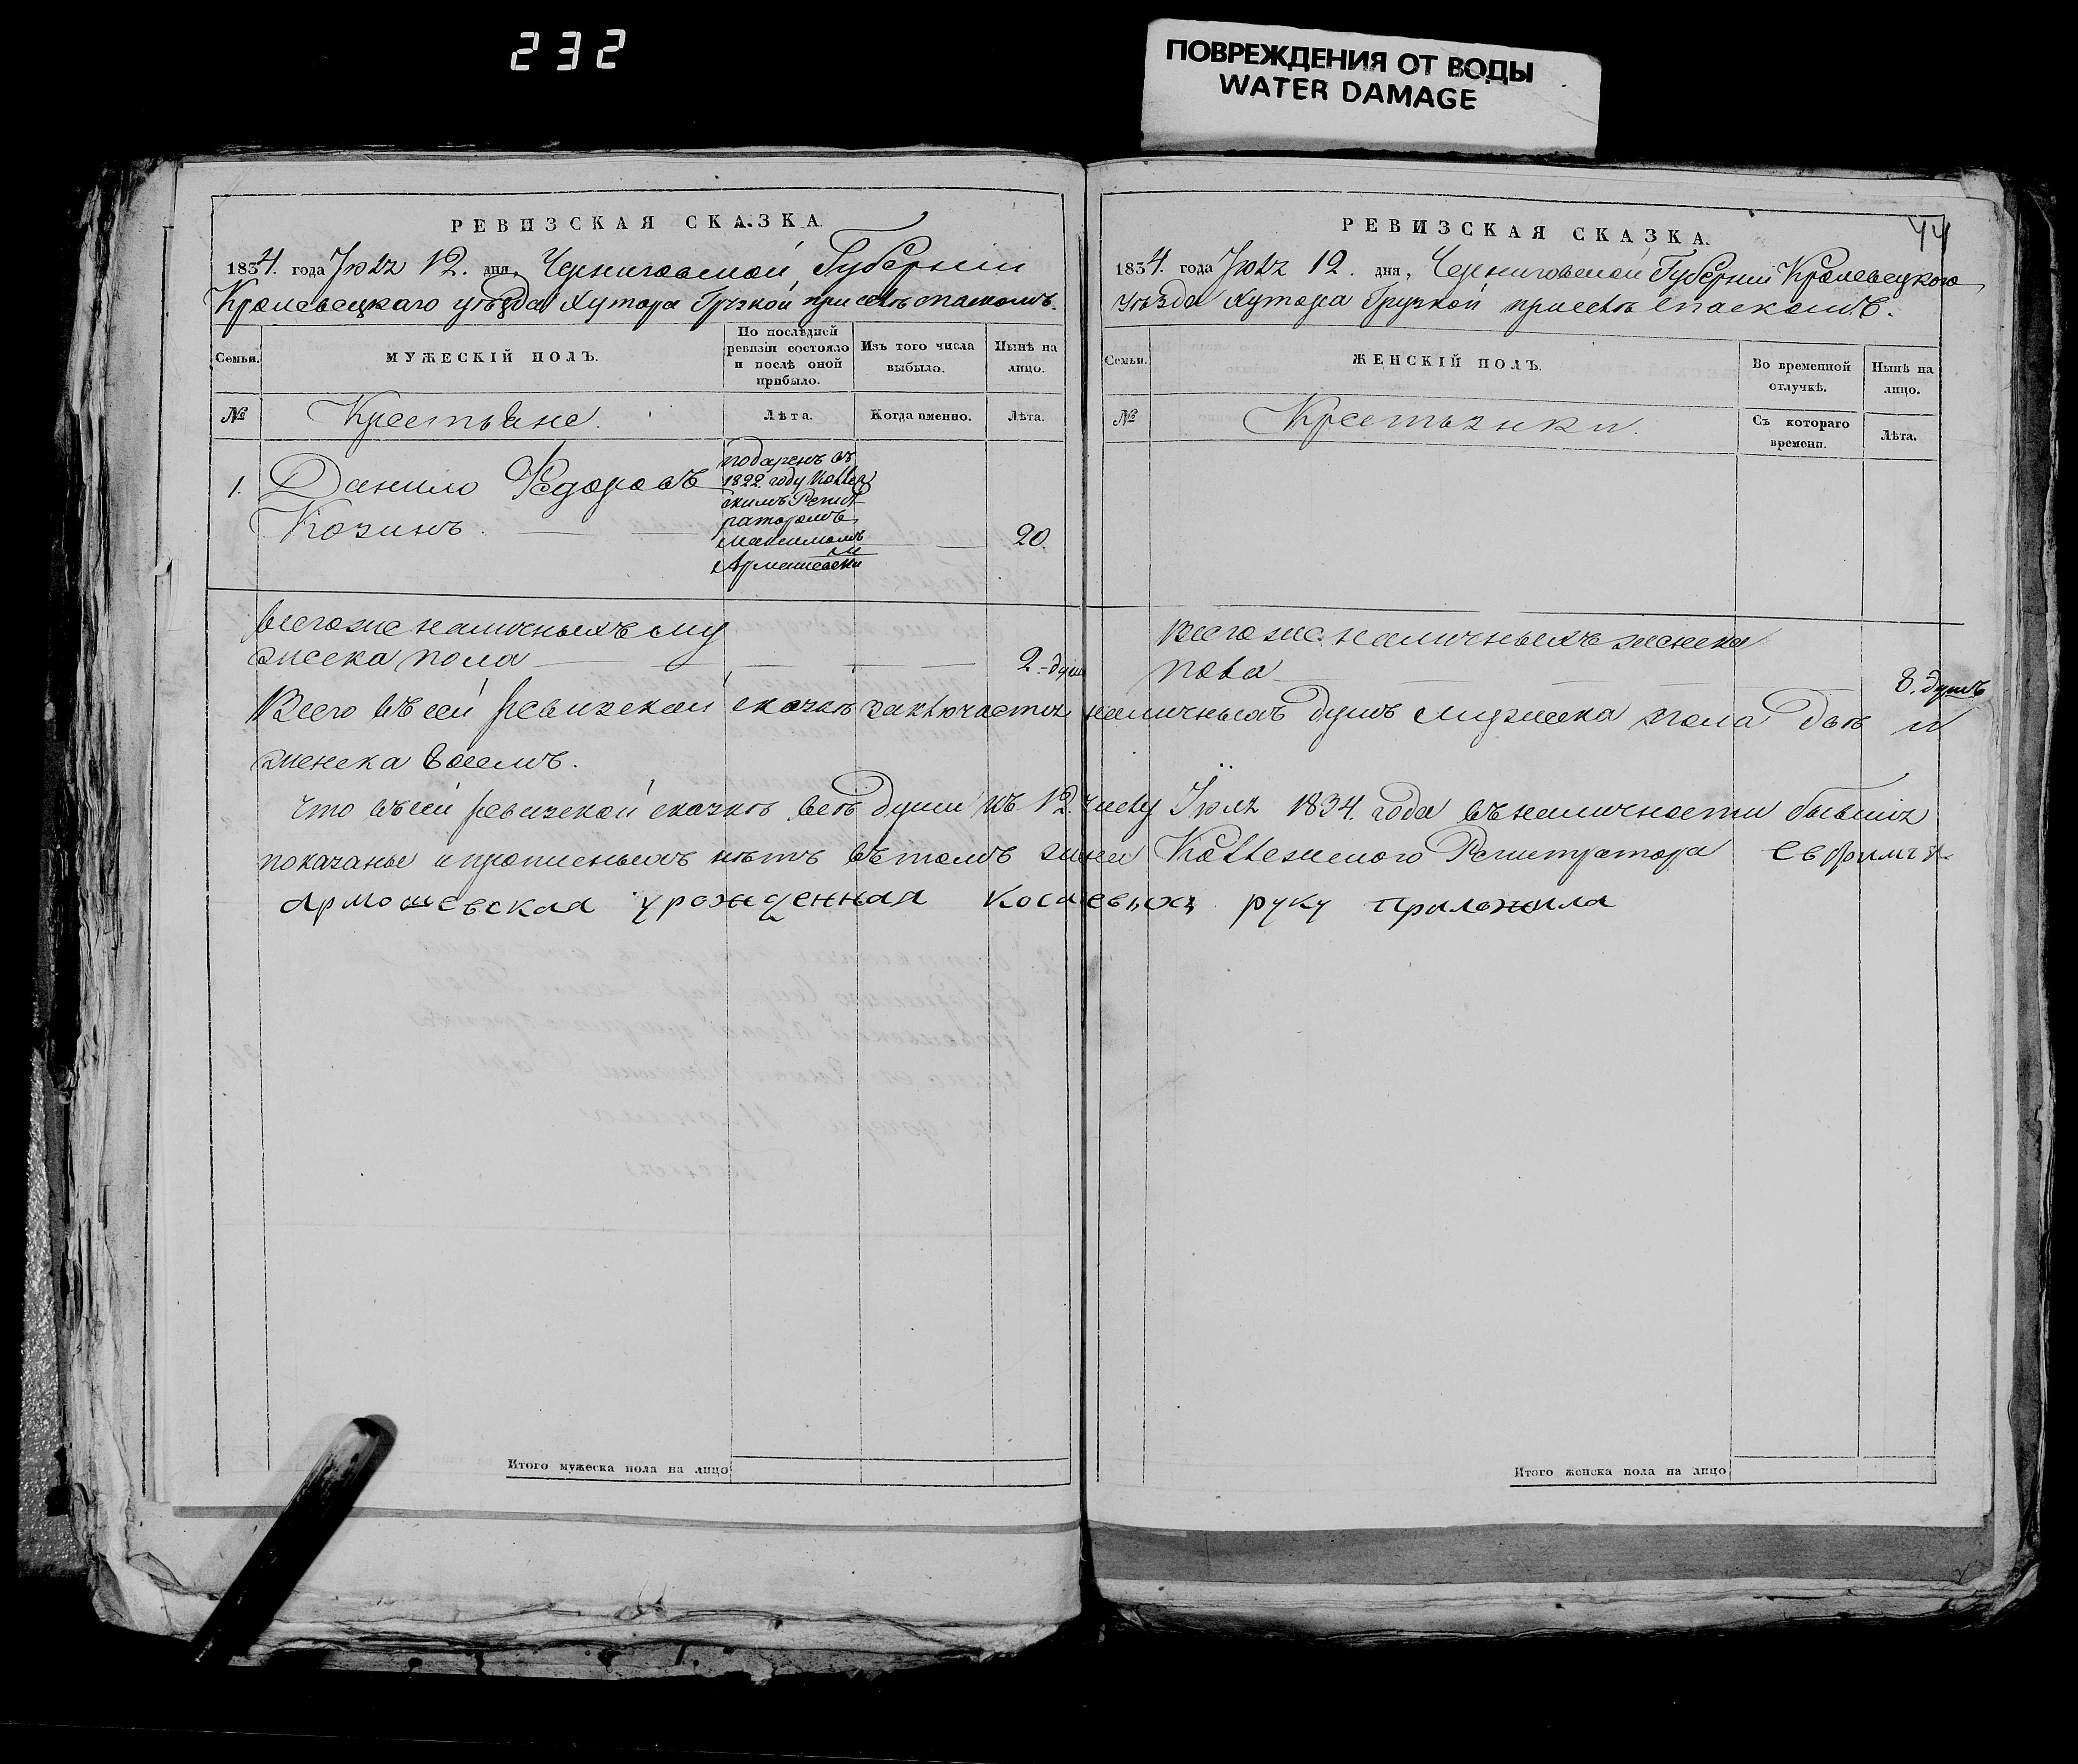 232
ПОВРЕЖДЕНИЯ ОТ ВОДЫ
WATER DAMAGE
РЕВИЗСКАЯ СКАЗКА.
1834. года Июля 12. дня, Черниговской Губерніи
Кролевецкаго уѣзда Хутора Грузкой при селѣ спаскомъ.
Семьи.
МУЖЕСКІЙ ПОЛЪ.
По послѣдней ревизіи состояло и послѣ оной прибыло.
Изъ того числа выбыло.
Нынѣ на лицо.
№
Крестьяне.
Лѣта.
Когда именно.
Лѣта.
1.
Данило Федоровъ
Козинъ.
подаренъ въ
1822 году Коллеж
скимъ Регист
раторомъ
Максимомъ
Армашевски
м
20.
Всегоже наличныхъ му
жеска пола
2. душ
РЕВИЗСКАЯ СКАЗКА.
44
1834. года Июля 12. дня, Черниговской Губерніи Кролевецкого
уѣзда Хутора Грузкой приселѣ Спаскомъ.
Семьи.
ЖЕНСКІЙ ПОЛЪ.
Во временной отлучкѣ.
Нынѣ на лицо.
№
Крестьянки.
Съ котораго времени.
Лѣта.
Всего же наличныхъ женска
пола
8. душъ
Всего въ сей ревизской сказкѣ заключается наличныхъ душъ мужеска пола двѣ и
женска восемъ.
Что въ сей ревизской сказкѣ всѣ души къ 12. числу Іюля 1834. года въ наличности бывшія
показаны и прописныхъ нѣтъ въ томъ жена Коллежского Регистратора Евфимія
Армошевская урожденная руку приложила
Итого мужеска пола на лицо
Итого женска пола на лицо